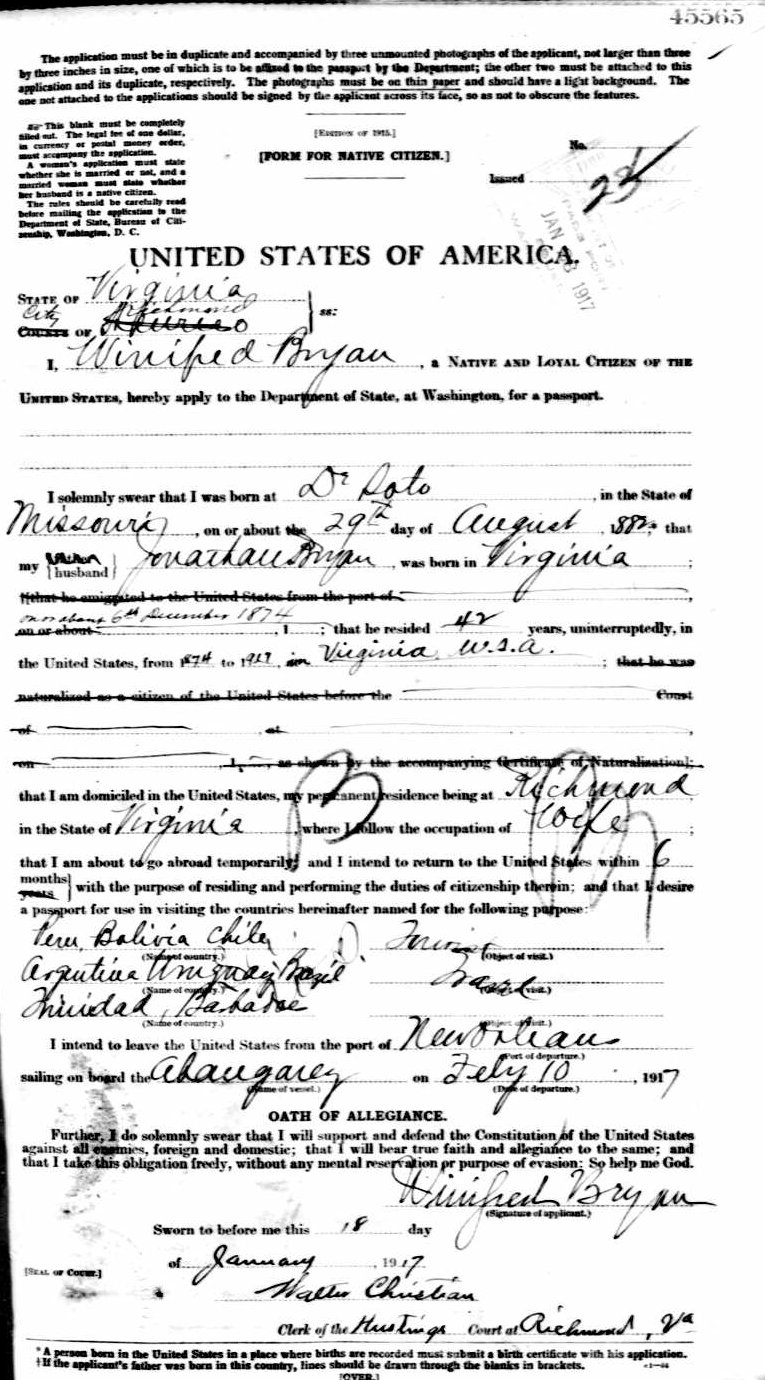 45565
The application must be in duplicate and accompanied by three unmounted photographs of the applicant, not larger than three
by three inches in size, one of which is to be affixed to the passport by the Department; the other two must be attached to this
application and its duplicate, respectively. The photographs must be on thin paper and should have a light background. The
one not attached to the applications should be signed by the applicant across its face, so as not to obscure the features.
This blank must be completely
filled out. The legal fee of one dollar,
in currency or postal money order,
must accompany the application.
A woman's application must state
whether she is married or not, and a
married woman must state whether
her husband is a native citizen.
The rules should be carefully read
before mailing the application to the
Department of State, Bureau of Citi-
zenship, Washington, D. C.
[EDITION OF 1915.]
[FORM FOR NATIVE CITIZEN.]
No.
Issued
JAN 1917
UNITED STATES OF AMERICA.
STATE OF Virginia
City Richmond
COUNTY OF Henrico
ss:
I, Winifred Bryan, a NATIVE AND LOYAL CITIZEN OF THE
UNITED STATES, hereby apply to the Department of State, at Washington, for a passport.
I solemnly swear that I was born at De Soto, in the State of
Missouri, on or about the 29th day of August, 1882; that
my husband Jonathan Bryan, was born in Virginia;
[that he emigrated to the United States from the port of
on or about 6th December 1874
on or about, 1; that he resided 42 years, uninterruptedly, in
the United States, from 1874 to 1917, in Virginia U.S.A.; that he was
naturalized as a citizen of the United States before the Court
of, at,
on, 1, as shown by the accompanying Certificate of Naturalization];
that I am domiciled in the United States, my permanent residence being at Richmond
in the State of Virginia, where I follow the occupation of Wife;
that I am about to go abroad temporarily; and I intend to return to the United States within 6
months
years with the purpose of residing and performing the duties of citizenship therein; and that I desire
a passport for use in visiting the countries hereinafter named for the following purpose:
Peru, Bolivia Chile,
(Name of country.) (Object of visit.)
Argentina Uruguay Brazil Travel
(Name of country.) (Object of visit.)
Trinidad, Barbadoe
(Name of country.) (Object of visit.)
I intend to leave the United States from the port of New Orleans
(Port of departure.)
sailing on board the Abangarez on Feby 10, 1917
(Name of vessel.) (Date of departure.)
OATH OF ALLEGIANCE.
Further, I do solemnly swear that I will support and defend the Constitution of the United States
against all enemies, foreign and domestic; that I will bear true faith and allegiance to the same; and
that I take this obligation freely, without any mental reservation or purpose of evasion: So help me God.
Winifred Bryan
(Signature of applicant.)
Sworn to before me this 18 day
of January, 1917
[SEAL OF COURT.]
Walter Christian
Clerk of the Hustings Court at Richmond, Va
* A person born in the United States in a place where births are recorded must submit a birth certificate with his application.
† If the applicant's father was born in this country, lines should be drawn through the blanks in brackets.
[OVER.]